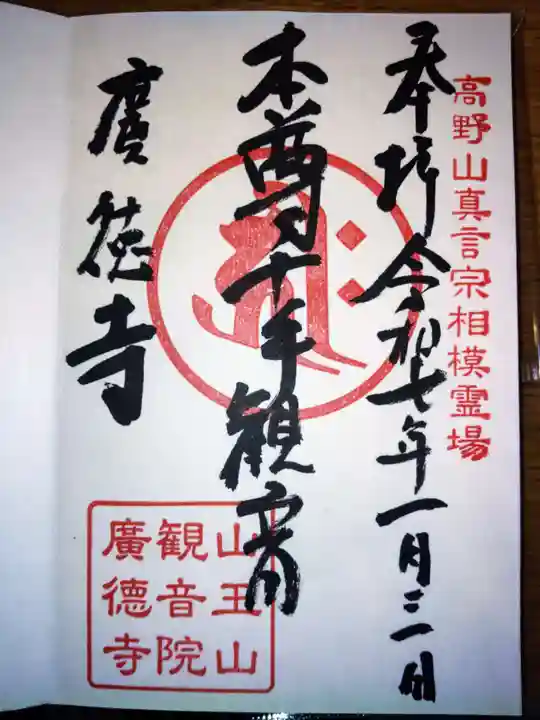 高野山真言宗相模霊場
奉拝令和七年一月三一日
本尊十一手観音
廣徳寺
山王山
観音院
廣德寺